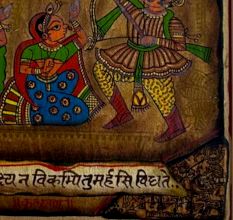 क्ष्य न विकम्पितुमर्ह सि विद्यते..